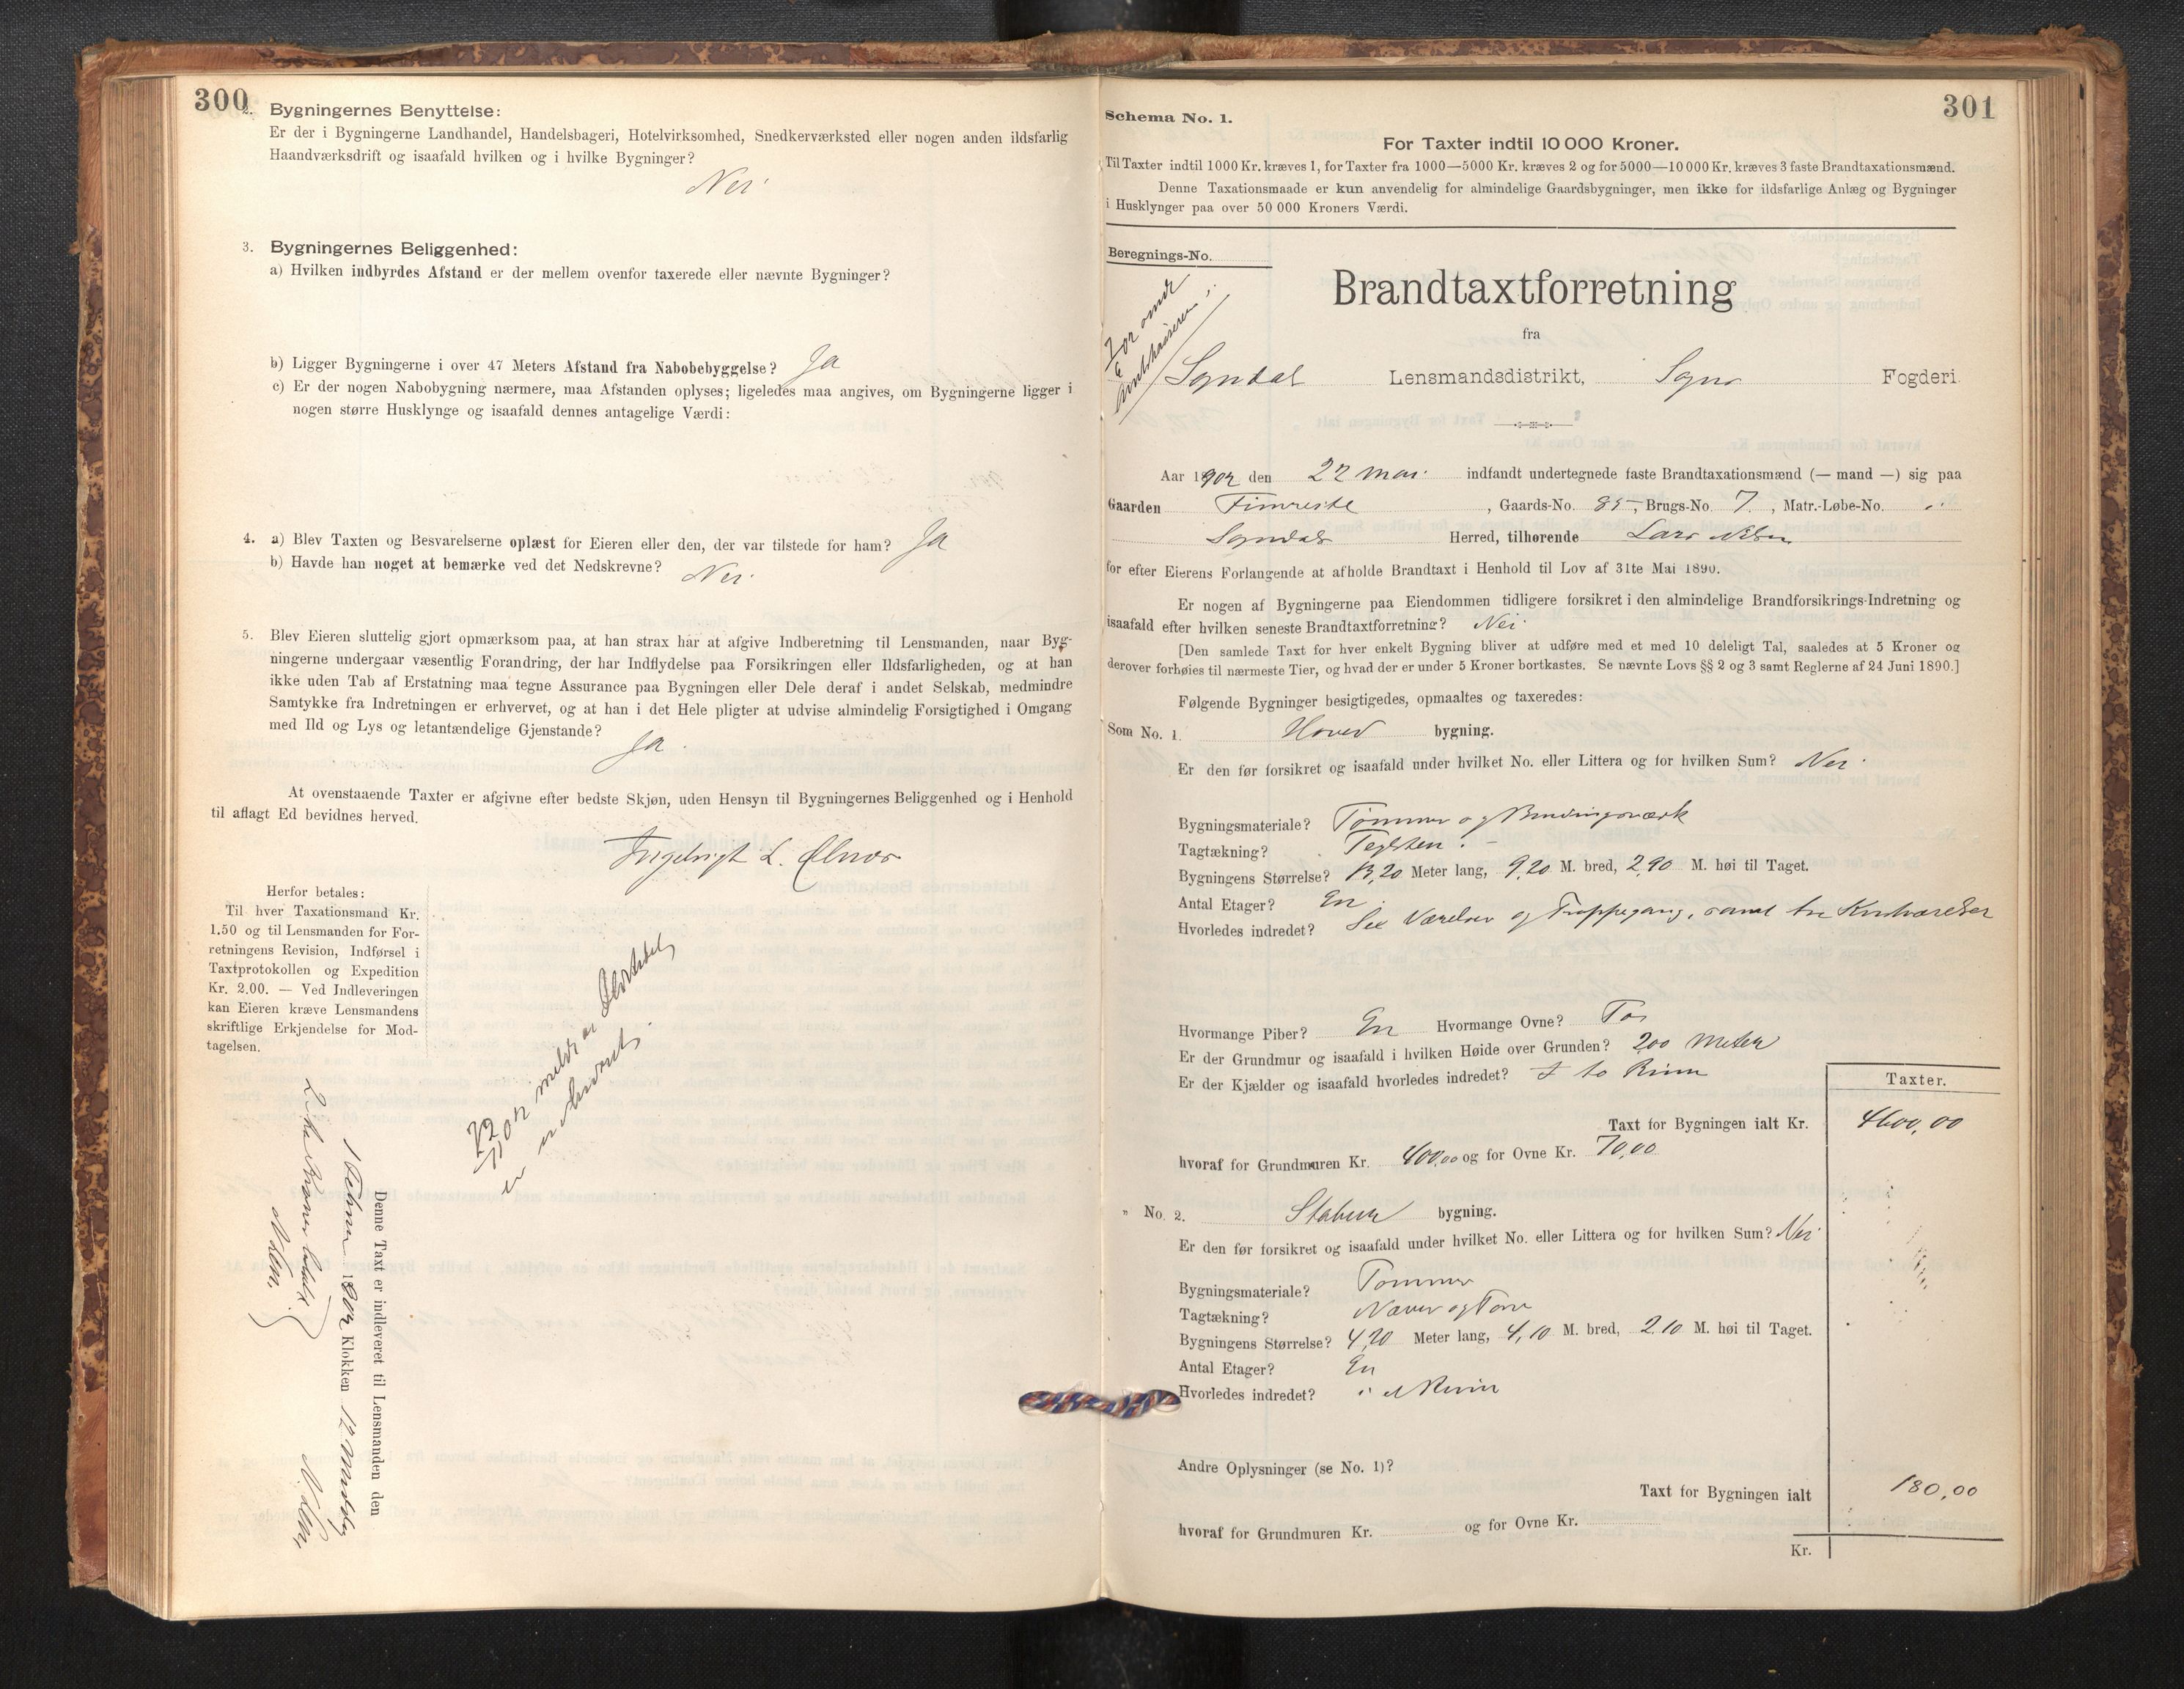 300
2. Bygningernes Benyttelse:
Er der i Bygningerne Landhandel, Handelsbageri, Hotelvirksomhed, Snedkerværksted eller nogen anden ildsfarlig
Haandværksdrift og isaafald hvilken og i hvilke Bygninger?
Nei
3. Bygningernes Beliggenhed:
a) Hvilken indbyrdes Afstand er der mellem ovenfor taxerede eller nævnte Bygninger?
b) Ligger Bygningerne i over 47 Meters Afstand fra Nabobebyggelse? Ja
c) Er der nogen Nabobygning nærmere, maa Afstanden oplyses; ligeledes maa angives, om Bygningerne ligger i
nogen større Husklynge og isaafald dennes antagelige Værdi:
4. a) Blev Taxten og Besvarelserne oplæst for Eieren eller den, der var tilstede for ham? Ja
b) Havde han noget at bemærke ved det Nedskrevne? Nei.
5. Blev Eieren sluttelig gjort opmærksom paa, at han strax har at afgive Indberetning til Lensmanden, naar Byg-
ningerne undergaar væsentlig Forandring, der har Indflydelse paa Forsikringen eller Ildsfarligheden, og at han
ikke uden Tab af Erstatning maa tegne Assurance paa Bygningen eller Dele deraf i andet Selskab, medmindre
Samtykke fra Indretningen er erhvervet, og at han i det Hele pligter at udvise almindelig Forsigtighed i Omgang
med Ild og Lys og letantændelige Gjenstande?
Ja.
At ovenstaaende Taxter er afgivne efter bedste Skjøn, uden Hensyn til Bygningernes Beliggenhed og i Henhold
til aflagt Ed bevidnes herved.
Ingebrigt L.
Herfor betales:
Til hver Taxationsmand Kr.
1.50 og til Lensmanden for For-
retningens Revision, Indførsel i
Taxtprotokollen og Expedition
Kr. 2.00. — Ved Indleveringen
kan Eieren kræve Lensmandens
skriftlige Erkjendelse for Mod-
tagelsen.
Denne Taxt er indleveret til Lensmanden den
1 Klokken 12 Middag
Kroner betalt.
301
Schema No. 1.
For Taxter indtil 10 000 Kroner.
Til Taxter indtil 1000 Kr. kræves 1, for Taxter fra 1000—5000 Kr. kræves 2 og for 5000—10 000 Kr. kræves 3 faste Brandtaxationsmænd.
Denne Taxationsmaade er kun anvendelig for almindelige Gaardsbygninger, men ikke for ildsfarlige Anlæg og Bygninger
i Husklynger paa over 50 000 Kroners Værdi.
Beregnings-No.
Brandtaxtforretning
fra
Sogndal Lensmandsdistrikt, Sogns Fogderi
Aar 1902 den 22 Mai indfandt undertegnede faste Brandtaxationsmænd (— mand —) sig paa
Gaarden Fimreite, Gaards-No. 85, Brugs-No. 7, Matr.-Løbe-No.
Sogndals Herred, tilhørende Lars
for efter Eierens Forlangende at afholde Brandtaxt i Henhold til Lov af 31te Mai 1890.
Er nogen af Bygningerne paa Eiendommen tidligere forsikret i den almindelige Brandforsikrings-Indretning og
isaafald efter hvilken seneste Brandtaxtforretning? Nei
[Den samlede Taxt for hver enkelt Bygning bliver at udføre med et med 10 deleligt Tal, saaledes at 5 Kroner og
derover forhøies til nærmeste Tier, og hvad der er under 5 Kroner bortkastes. Se nævnte Lovs §§ 2 og 3 samt Reglerne af 24 Juni 1890.]
Følgende Bygninger besigtigedes, opmaaltes og taxeredes:
Som No. 1. Hoved bygning.
Er den før forsikret og isaafald under hvilket No. eller Littera og for hvilken Sum? Nei.
Bygningsmateriale? Tømmer og Bindingsværk
Tagtækning? Teglsten.
Bygningens Størrelse? 13,20 Meter lang, 9,20 M. bred, 2,90 M. høi til Taget.
Antal Etager? En
Hvorledes indredet? Sex Værelser og Trappegang, samt tre Kvistværelser
Hvormange Piber? En Hvormange Ovne? To
Er der Grundmur og isaafald i hvilken Høide over Grunden? 2,00 Meter
Er der Kjælder og isaafald hvorledes indredet? I to Rum
Taxter.
Taxt for Bygningen ialt Kr. 4600,00
hvoraf for Grundmuren Kr. 400,00 og for Ovne Kr. 70,00
" No. 2. Stabur bygning.
Er den før forsikret og isaafald under hvilket No. eller Littera og for hvilken Sum? Nei
Bygningsmateriale? Tømmer
Tagtækning? Næver og Torv
Bygningens Størrelse? 4,20 Meter lang, 4,10 M. bred, 2,10 M. høi til Taget.
Antal Etager? En
Hvorledes indredet? i et Rum
Andre Oplysninger (se No. 1)?
Taxt for Bygningen ialt 180,00
hvoraf for Grundmuren Kr. og for Ovne Kr.
Kr.